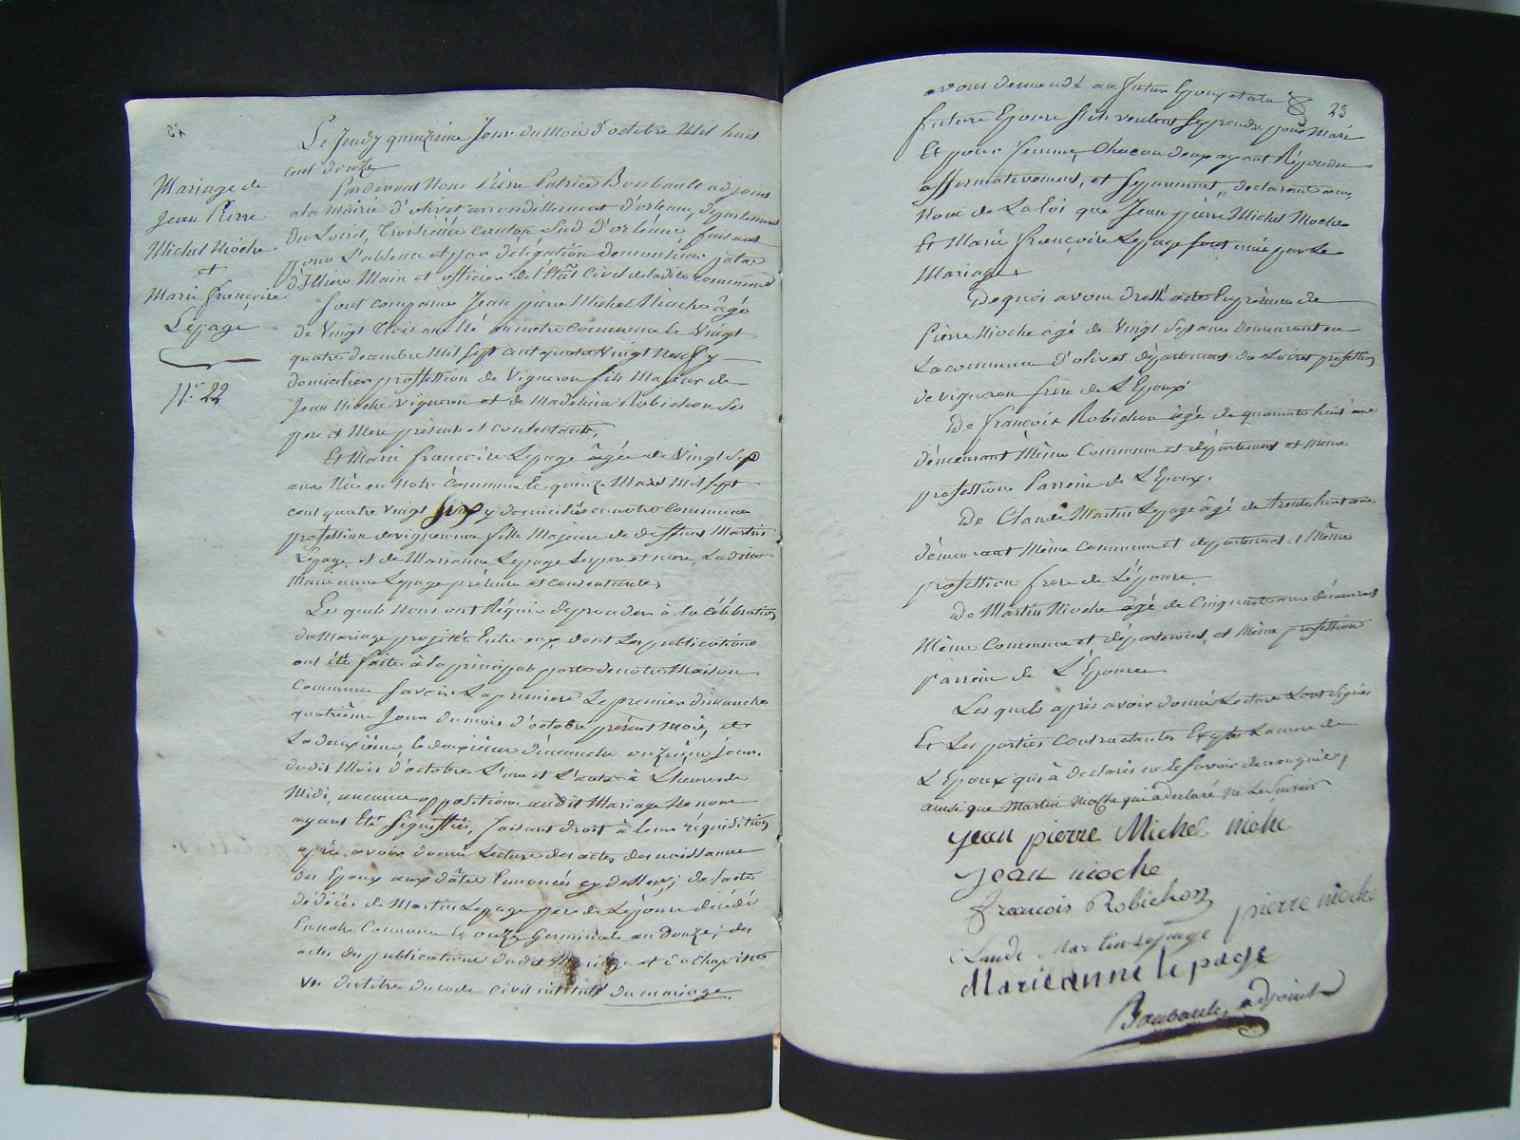 Mariage de
Jean Pierre
Michel Nioche
et
Marie françoise
Lepage
N.° 22
Le Jeudy quinzieme Jour du Mois d'octobre Mil huit
cent douze
Pardevant Nous Pierre Patrice Boubault adjoint
a la Mairie d'olivet arrondissement d'orleans, departement
du Loiret, troisieme canton Sud d'orleans, faisant
pour L'absence et par délégation de monsieur
Maire et officier de l'Etat Civil de ladite commune
Sont comparus Jean pierre Michel Nioche âgé
de Vingt trois ans Né en notre Commune le Vingt
quatre decembre Mil Sept cent quatre Vingt Neuf y
domicilié proffession de Vigneron fils Majeur de
Jean Nioche Vigneron et de Madeleine Robichon Ses
pere et Mere présents et consentants,
Et Marie françoise Lepage âgée de Vingt Sept
ans Née en Notre Commune le quinze Mars Mil Sept
cent quatre Vingt y domiciliée en notre Commune
proffession de vigneronne fille Majeure de deffunt Martin
Lepage et de Marianne Lepage Ses pere et mere Ladite
Marianne Lepage présente et consentante,
Les quels Nous ont Réquis de proceder à la Célébration
du Mariage projetté Entre eux, dont Les publications
ont été faites à la principale porte de notre Maison
Commune Savoir La premiere Le premier dimanche
quatrième Jour du mois d'octobre présent Mois, et
La deuxième, le deuxième dimanche onzième jour
dudit Mois d'octobre L'une et L'autre à L'heure de
Midi, aucune opposition audit Mariage Ne nous
ayant Eté Signiffiée, faisant droit à leur réquisition
après avoir donné Lecture des actes de naissance
des Epoux aux dates Enoncées cy dessus, de l'acte
de décès de Martin Lepage pere de L'épouse décédé
En notre Commune le onze Germinal an douze, des
actes de publications dudit Mariage et du Chapitre
VI du titre du code Civil intitulé du mariage.
23
avons demandé au futur Epoux et a la
future Epouse S'ils veulent Se prendre pour Mari
Et pour femme, Chacun d'eux ayant Répondu
affirmativement, et Séparement, declarons au
Nom de La loi que Jean pierre Michel Nioche
Et Marie françoise Lepage Sont unis par Le
Mariage.
De quoi avons dressé acte En présence de
Pierre Nioche âgé de Vingt Sept ans demeurant en
La commune d'olivet département du Loiret proffession
de vigneron frere de L'Epoux
De françois Robichon âgé de quarante huit ans
démeurant Même Commune et département et Même
proffession Parrein de L'Epoux.
De Claude Martin Lepage âgé de trente huit ans
démeurant Même Commune et département et Même
proffession frere de L'épouse.
De Martin Nioche âgé de Cinquante ans démeurant
Même Commune et département, et Même proffession
parrein de L'Epouse
Les quels après avoir donné Lecture L'ont Signés
Et Les parties Contractantes Excepté La mere de
L'Epoux qui à declarés ne le Savoir de ce requise,
ainsi que Martin Nioche qui a declaré ne Le Savoir
jean pierre Michel nioche
jean nioche
françois Robichon pierre nioche
Claude Martin Lepage
Marieanne lepage
Boubault adjoint